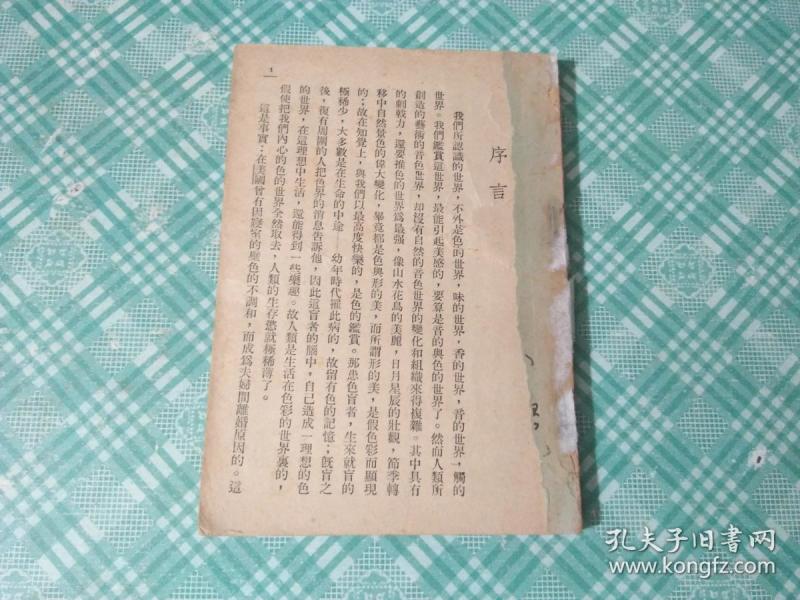 序言
我們所認識的世界，不外是色的世界，味的世界，香的世界，音的世界，觸的
世界。我們鑑賞這世界，最能引起美感的，要算是音的與色的世界了。然而人類所
創造的藝術的音色世界，却沒有自然的音色世界的變化和組織來得複雜。其中具有
的刺戟力，還要推色的世界爲最强，像山水花鳥的美麗，日月星辰的壯觀，節季轉
移中自然景色的偉大變化，畢竟都是色與形的美，而所謂形的美，是假色彩而顯現
的；故在知覺上，與我們以最高度快樂的，是色的鑑賞。那患色盲者，生來就盲的
極稀少，大多數是在生命的中途——幼年時代罹此病的，故留有色的記憶；旣盲之
後，復有周圍的人把色界的消息告訴他，因此這盲者的腦中，自己造成一理想的色
的世界，在這理想中生活，還能得到一些樂趣。故人類是生活在色彩的世界裏的，
假使把我們內心的色的世界全然取去，人類的生存慾就極稀薄了。
這是事實：在美國曾有因寢室的壁色的不調和，而成爲夫婦間離婚原因的。這
1
孔夫子旧书网
kongfz.com